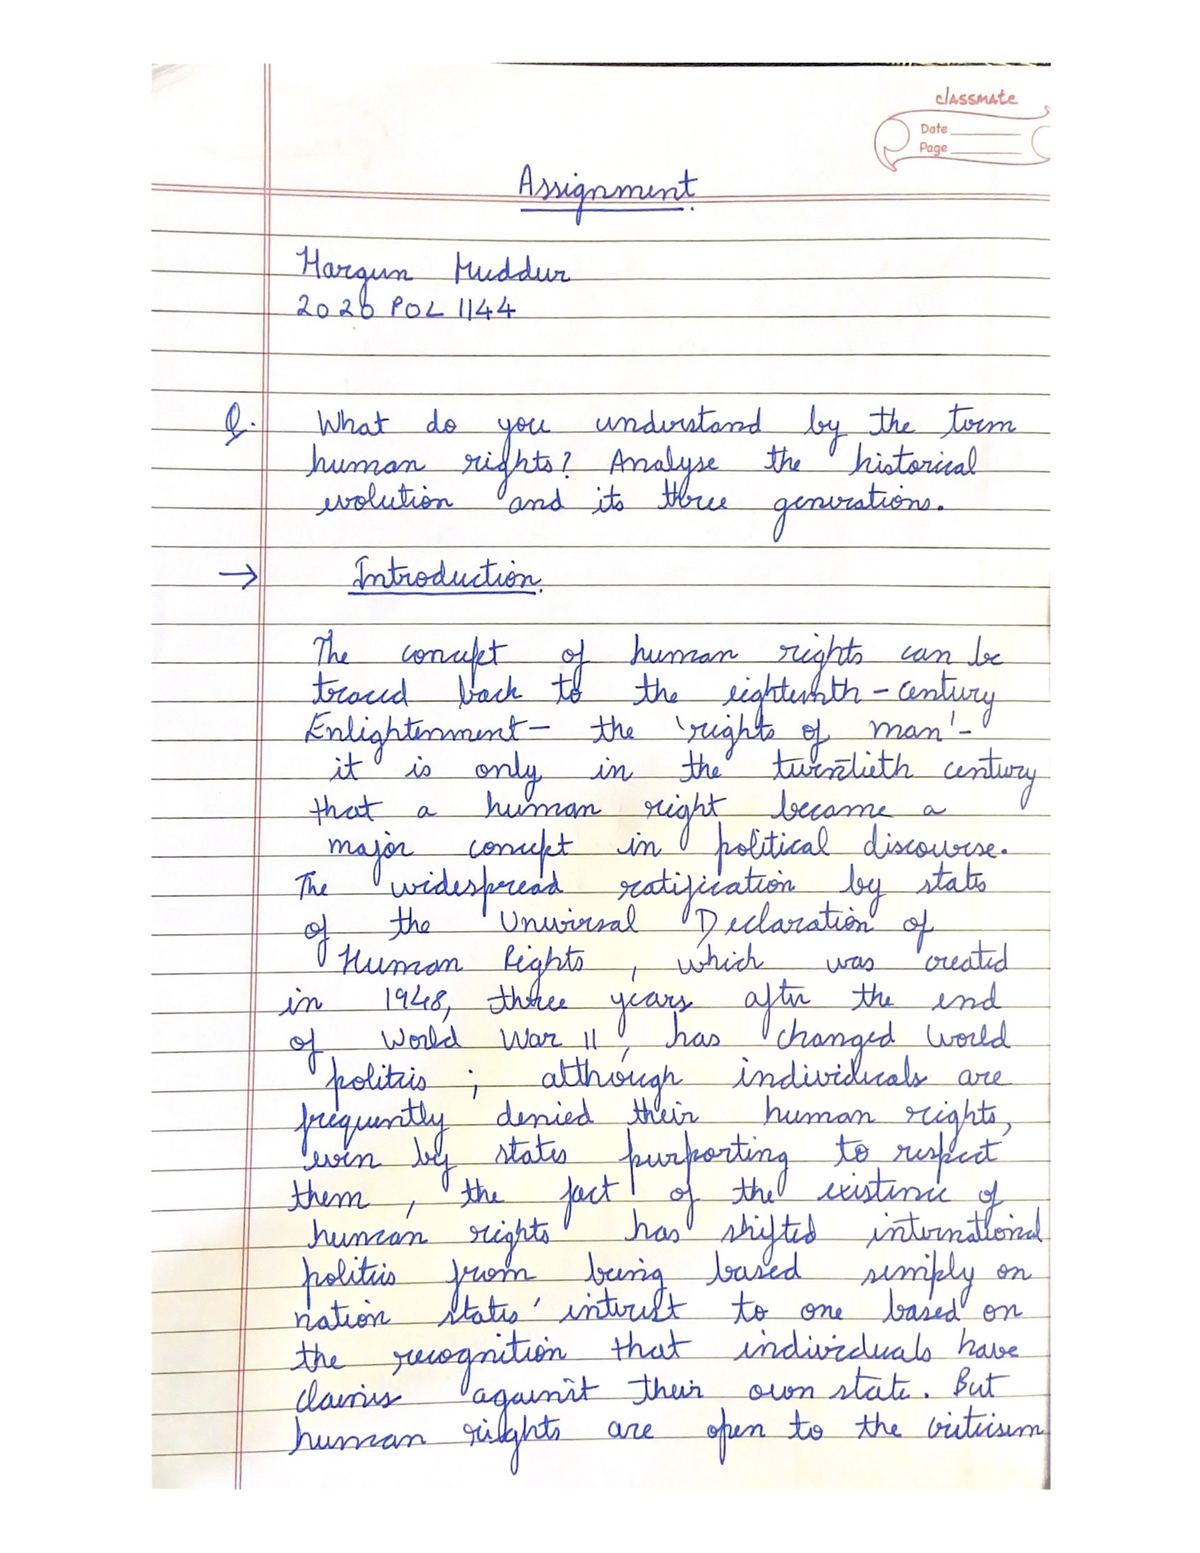 classmate
Date
Page
Assignment
Hargun
2020 POL 1144
Q. What do you understand by the term
human rights? Analyse the historical
evolution and its three generations.
→ Introduction
The concept of human rights can be
traced back to the eighteenth-century
Enlightenment- the 'rights of man'-
it is only in the twentieth century
that a human right became a
major concept in political discourse.
The widespread ratification by states
of the Universal Declaration of
Human Rights, which was created
in 1948, three years after the end
of World War II, has changed world
politics; although individuals are
frequently denied their human rights,
even by states purporting to respect
them, the fact of the existence of
human rights has shifted international
politics from being based simply on
nation states' interest to one based on
the recognition that individuals have
claims against their own state. But
human rights are open to the criticism